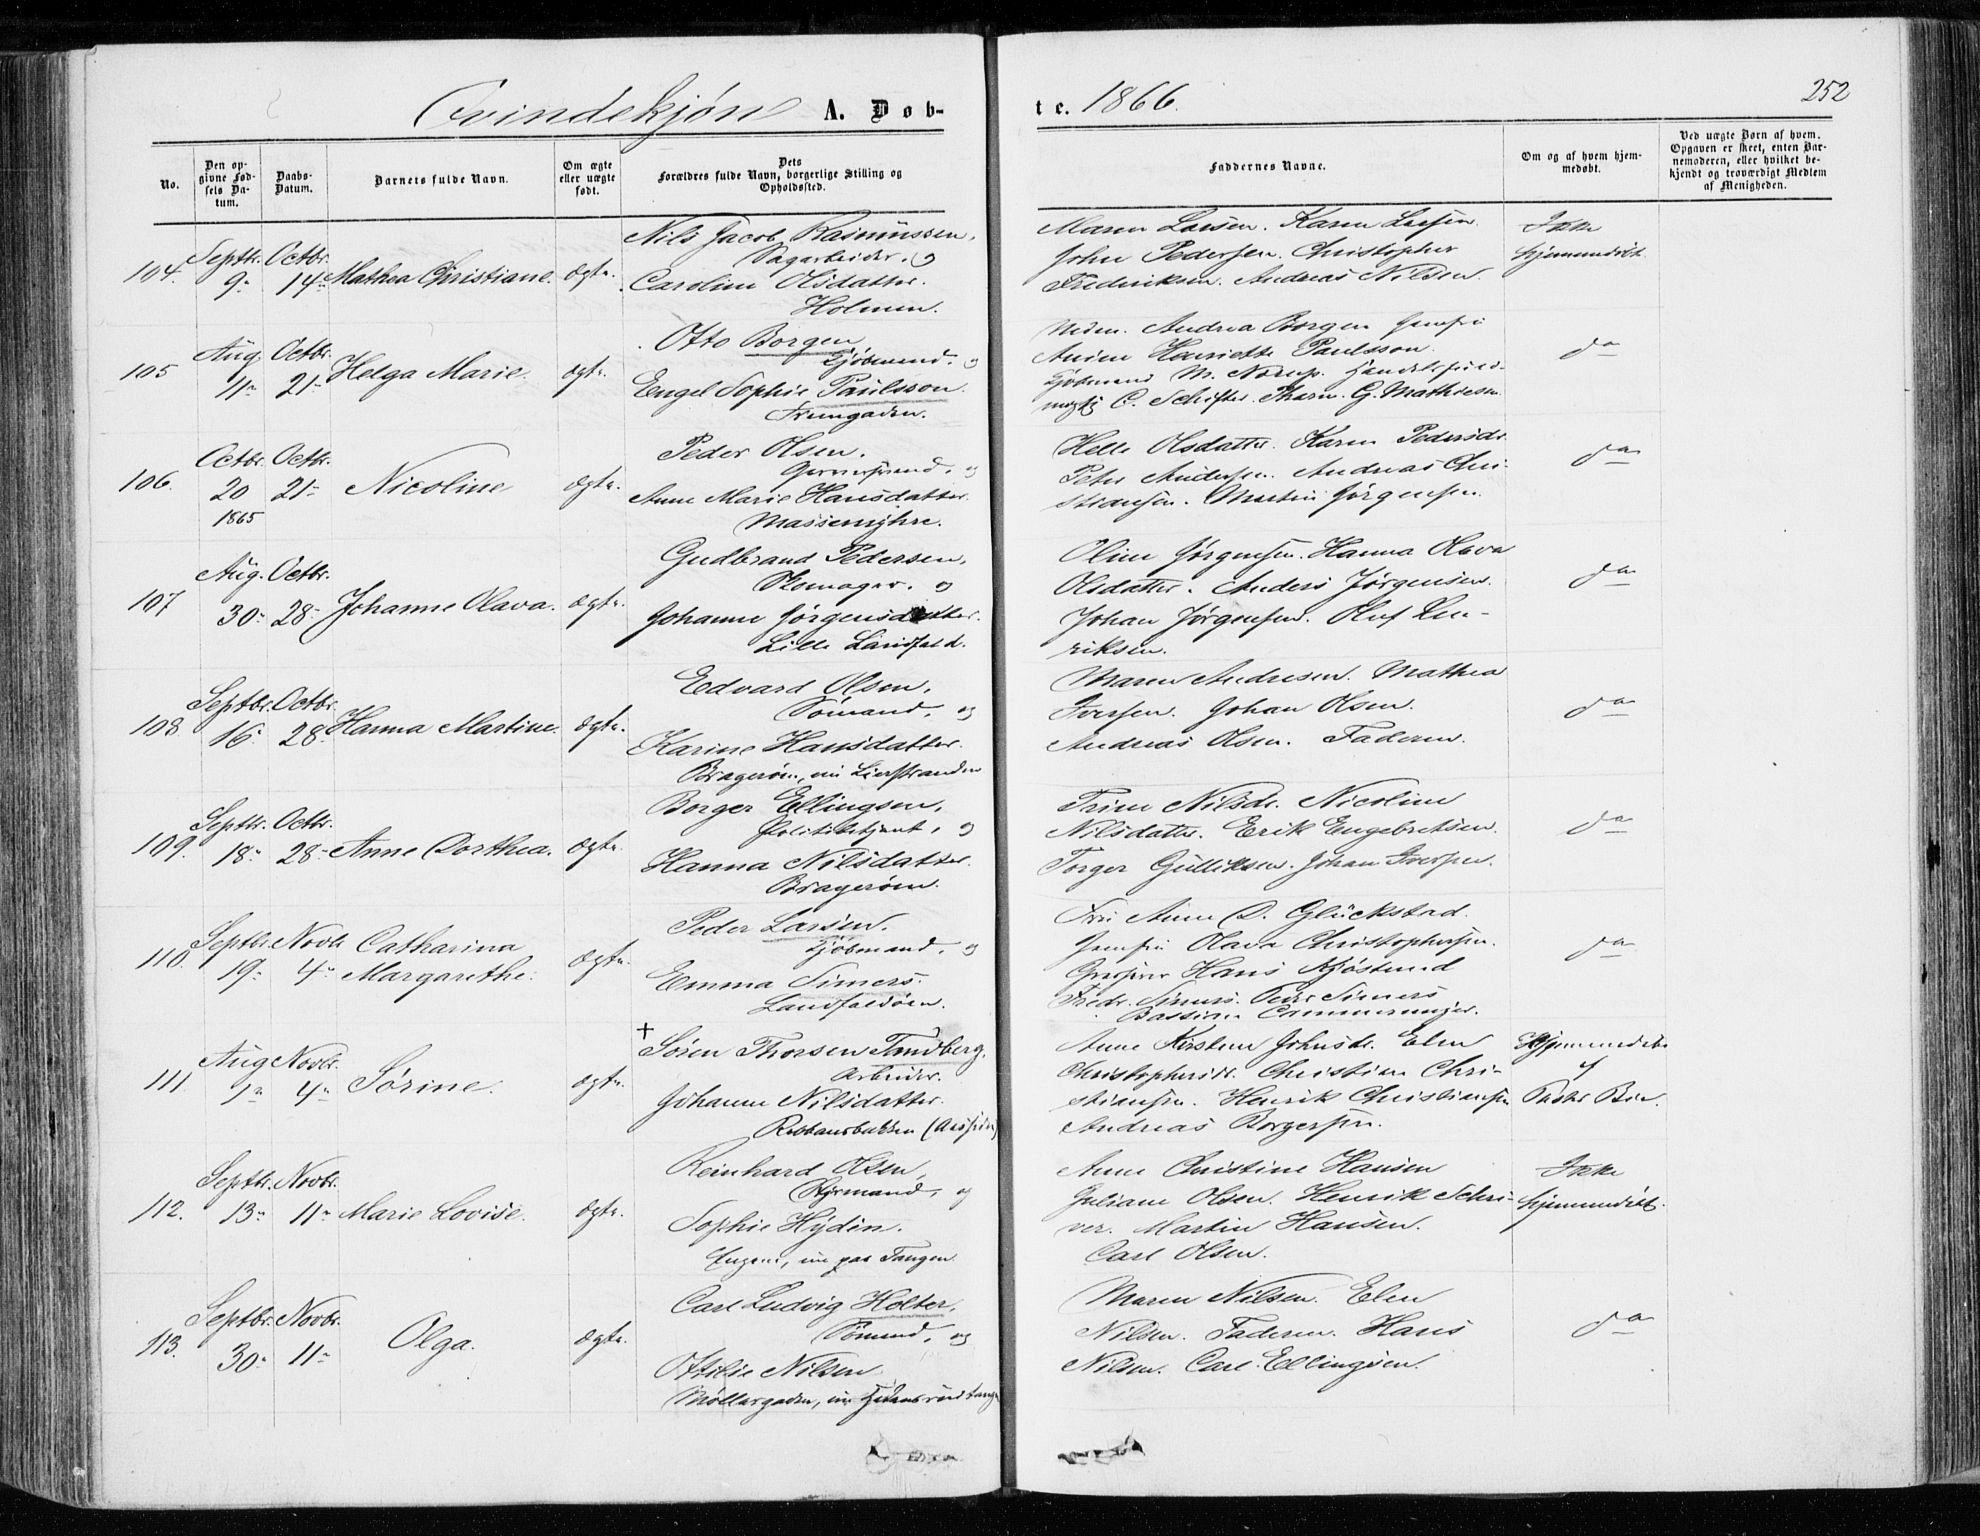 Qvindekjøn A. Døb-
te. 1866.
252
No.
Den opgivne Fødsels Datum.
Daabs-Datum.
Barnets fulde Navn.
Om ægte eller uægte født.
Dets Forældres fulde Navn, borgerlige Stilling og Opholdssted.
Faddernes Navne.
Om og af hvem hjemmedøbt.
Ved uægte Børn af hvem. Opgaven er skeet, enten Barnemoderen, eller hvilket bekjendt og troværdigt Medlem af Menigheden.
104. Septbr. 9 Octbr. 14 Mathea Christiane. ægte.
Nils Jacob Rasmussen,
Sagarbeider. og
Caroline Olsdatter.
Holmen.
Maren Larsen. Karen Larsen.
John Pedersen. Christopher
Frederiksen. Andreas Nilsen.
Ikke
hjemmedøbt
105 Aug. 11 Octbr. 21 Helga Marie. ægte.
Otto Borgen,
Kjøbmand. og
Engel Sophie Paulsson.
Andrea Borgen
Henriette Paulsson.
Kjøbmand M. Nørup.
C. Schifter. G. Mathiesen.
do
106. Octbr. 20 1865 Octbr. 21 Nicoline ægte.
Peder Olsen.
og
Anne Marie Hansdatter.
Helle Olsdatter. Karen Pedersdr.
Peter Andersen. Andreas Chri-
stiansen. Martin Jørgensen.
do
107 Aug. 30 Octbr. 28 Johanne Olava. ægte.
Gudbrand Pedersen,
Skomager. og
Johanne Jørgensdatter.
Lille Landfald.
Oline Jørgensen. Hanna Olava
Olsdatter. Anders Jørgensen.
Johan Jørgensen. Oluf Hen-
riksen.
do
108 Septbr. 16 Octbr. 28 Hanna Martine. ægte.
Edvard Olsen,
Sømand, og
Karine Hansdatter.
Bragerøen, nu Lierstranden
Maren Andresen. Mathea
Iversen. Johan Olsen.
Andreas Olsen. Faderen.
do
109. Septbr. 18 Octbr. 28 Anne Dorthea. ægte.
Borger Ellingsen,
Politibetjent, og
Hanna Nilsdatter.
Bragerøen.
Trine Nilsdr. Nicoline
Nilsdatter. Erik Engebretsen.
Torger Gulliksen. Johan Iversen.
do
110. Septbr. 19 Novbr. 4 Catharina
Margarethe. ægte.
Peder Larsen.
Kjøbmand. og
Emma Simers.
Landfaldøen.
Fru Anne D. Glückstad.
Olava Christophersen.
Hans Kjøsterud
Fredr. Simers. Peder Simers
do
111. Aug 1 Novbr. 4 Sørine. ægte.
+
Søren Thorsen Tandberg.
Arbeider.
Johanne Nilsdatter.
Anne Kirstine Johnsdr. Elen
Christophersdr. Christian Chri-
stiansen. Henrik Christiansen
Andreas Borgersen.
Hjemmedøbt
af
Pastor Bie.
112. Septbr. 13 Novbr. 11 Marie Lovise. ægte.
Reinhard Olsen
Styrmand, og
Sophie Hydén.
nu paa Tangen
Anne Christine Hansen
Juliane Olsen. Henrik Schri-
ver. Martin Hansen.
Carl Olsen.
Ikke
hjemmedøbt.
113. Septbr. 30 Novbr. 11 Olga. ægte.
Carl Ludvig Holter,
Sømand, og
Ottilie Nilsen
Maren Nilsen. Elen
Nilsen. Faderen. Hans
Nilsen. Carl Ellingsen.
do